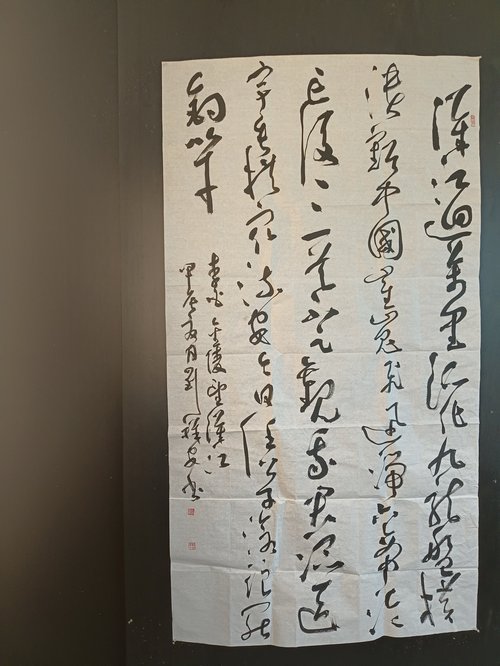 漢江迴萬里派作九龍盤橫
潰豁中國崔嵬飛迅湍六帝淪
亡後三吳不足觀我君混區
宇垂拱衆流安今日任公子滄浪罷
釣竿
李白金陵望漢江
甲辰 月劉 安書